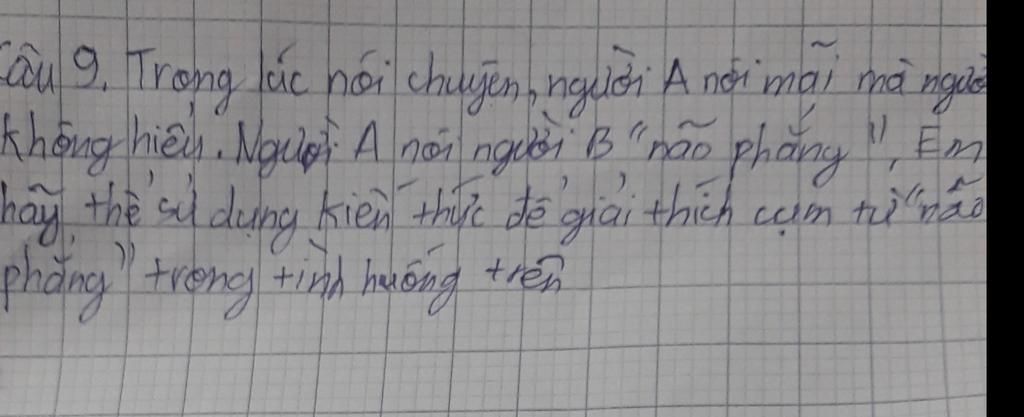 Câu 9. Trong lúc nói chuyện, người A nói mãi mà người
không hiểu. Người A nói người B "não phẳng". Em
hãy thể sử dụng kiến thức để giải thích cụm từ "não
phẳng" trong tình huống trên